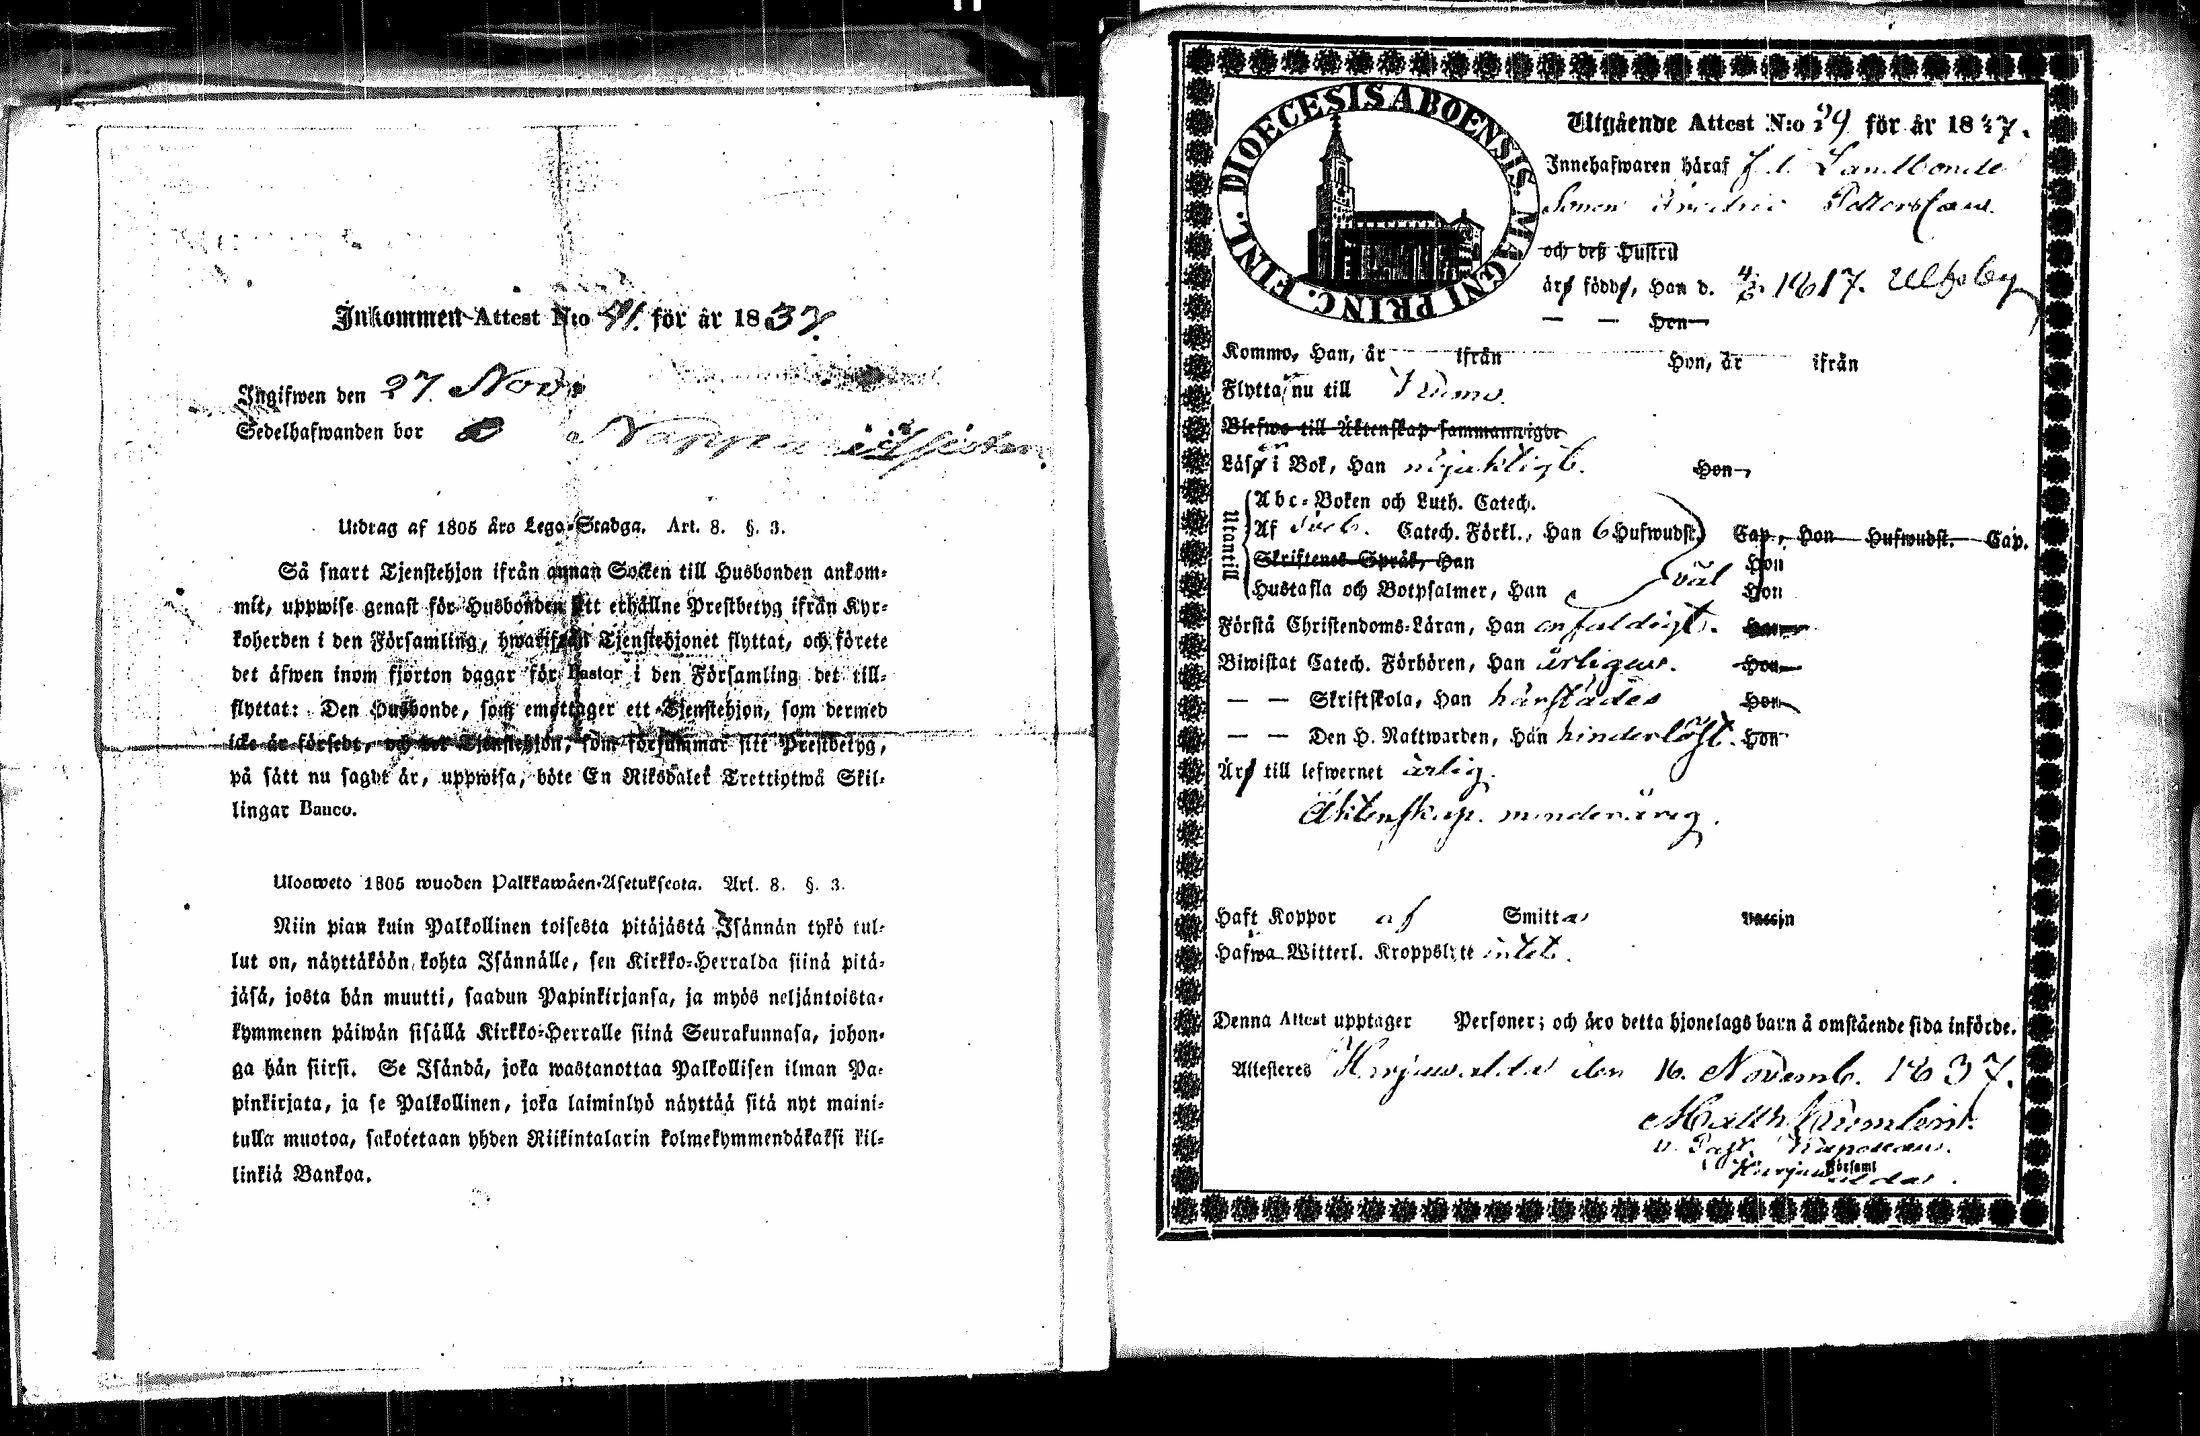 Inkommen Attest N:o 41. för år 1837.
Ingifwen den 27. Nov.
Sedelhafwanden bor
Utdrag af 1805 års Lego-Stadga. Art. 8. §. 3.
Så snart Tjenstehjon ifrån annan Socken till Husbonden ankom-
mit, uppwise genast för Husbonden sitt erhållne Prestbetyg ifrån Kyr-
koherden i den Församling, hwarifrån Tjenstehjonet flyttat, och förete
det äfwen inom fjorton dagar för Pastor i den Församling det till-
flyttat: Den Husbonde, som emottager ett Tjenstehjon, som dermed
icke är försedt, och det Tjenstehjon, som försummar sitt Prestbetyg,
på sätt nu sagdt är, uppwisa, böte En Riksdaler Trettiotwå Skil-
lingar Banco.
Ulosweto 1805 wuoden Palkkawäen-Asetuksesta. Art. 8. §. 3.
Niin pian kuin Palkollinen toisesta pitäjästä Isännän tykö tul-
lut on, näyttäköön kohta Isännälle, sen Kirkko-Herralda siinä pitä-
jäsä, josta hän muutti, saadun Papinkirjansa, ja myös neljäntoista-
kymmenen päiwän sisällä Kirkko-Herralle siinä Seurakunnasa, johon-
ga hän siirsi. Se Isändä, joka wastanottaa Palkollisen ilman Pa-
pinkirjata, ja se Palkollinen, joka laiminlyö näyttää sitä nyt maini-
tulla muotoa, sakotetaan yhden Riikintalarin kolmekymmendäkaksi kil-
linkiä Bankoa.
DIOECESIS ABOENSIS. MAGNI PRINC. FINL.
Utgående Attest N:o 29 för år 1837.
Innehafwaren häraf f. d. Landbonde
Sonen Fredric Pettersson
och deß Hustru
äro födde, Han d. 4/6. 1817. Ulfsby
— — Hon
Kommo, Han, år ifrån Hon, år ifrån
Flytta nu till
Blefwo till Äktenskap sammanwigde
Läsa i Bok, Han nöjaktligt. Hon,
Utantill
Abc-Boken och Luth. Catech.
Af Sveb. Catech. Förkl., Han 6 Hufwudst. Cap., Hon Hufwudst. Cap.
Skriftenes Språk, Han Hon
Hustafla och Botpsalmer, Han väl Hon
Förstå Christendoms-Läran, Han enfaldigt. Hon
Biwistat Catech. Förhören, Han årligen. Hon
— — Skriftskola, Han härstädes Hon
— — Den H. Nattwarden, Han hinderlöst. Hon
Äro till lefwernet ärlig.
Äktenskap. minderårig.
Haft Koppor af Smitta Vaccin
Hafwa Witterl. Kroppslyte intet.
Denna Attest upptager Personer; och äro detta hjonelags barn å omstående sida införde.
Attesteres Harjawalda den 16. Novemb. 1837.
v. Past. Kapellan.
Harjawalda Församl